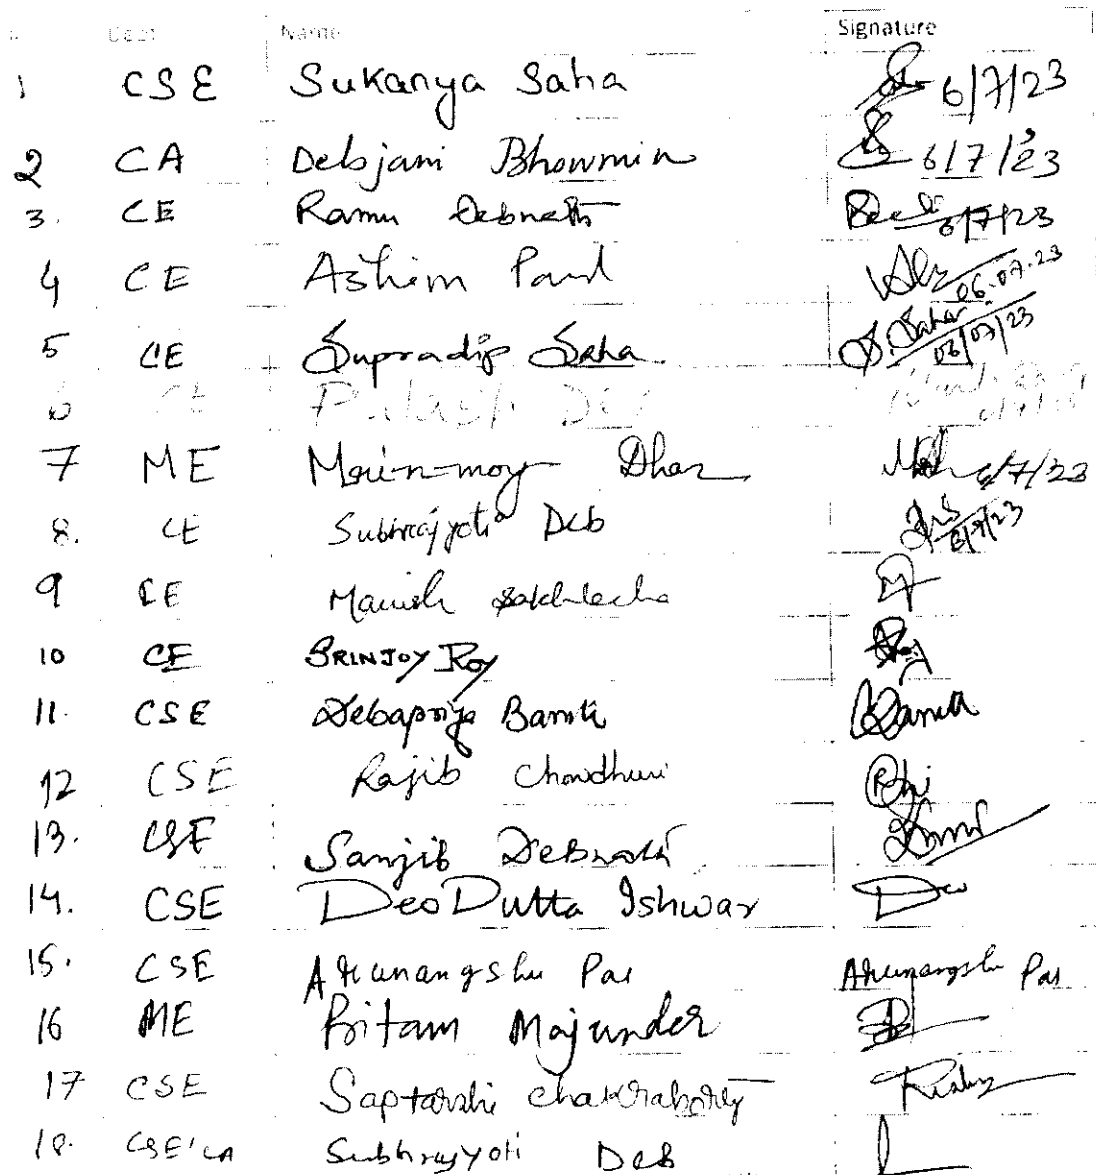 Dept Name Signature
1 CSE Sukanya Saha 6/7/23
2 CA Debjani Bhowmin 6/7/23
3. CE Ramu Debnath 6/7/23
4 CE Ashim Paul 06.07.23
5 CE Supradip Saha S. Saha 06/07/23
6 CE Palash Das
7 ME Mrinmoy Dhar 6/7/23
8. CE Subhrajyoti Deb 6/7/23
9 CE Manish Sakhlecha
10 CE SRINJOY ROY
11. CSE Debapriya Banik
12 CSE Rajib Chowdhuri
13. CSE Sanjib Debnath
14. CSE Deo Dutta Ishwar Deo
15. CSE Arunangshu Pal Arunangshu Pal
16 ME Pritam Majumder
17 CSE Saptarshi Chakraborty
18. CSE/CA Subhrajyoti Deb